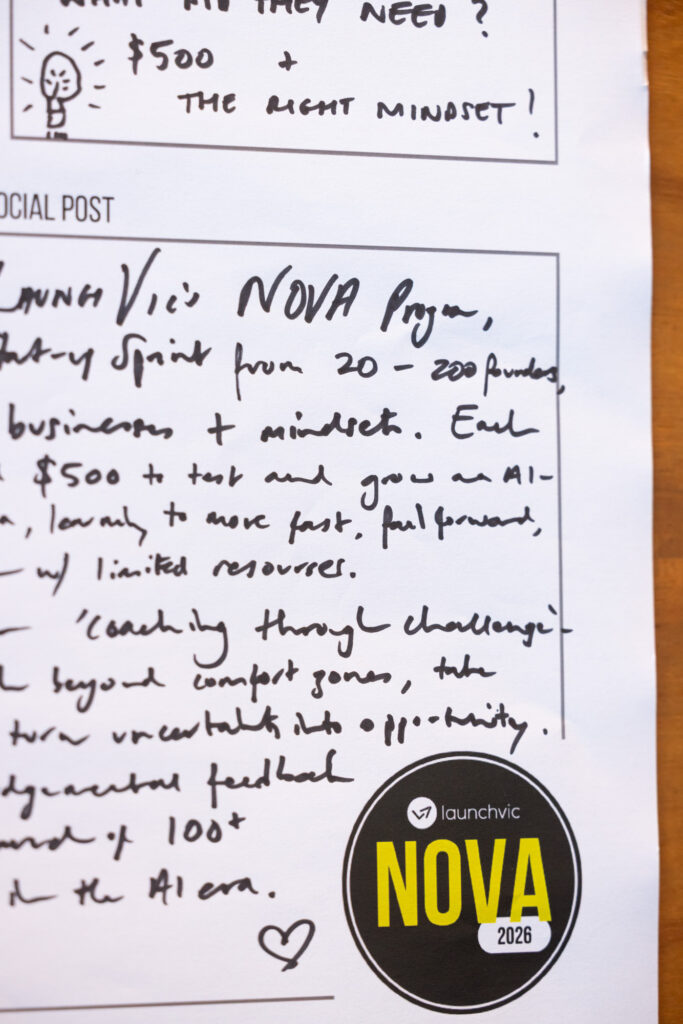 WHAT DID THEY NEED?
$500 +
THE RIGHT MINDSET!
OCIAL POST
LAUNCH VIC's NOVA Program,
Start-up Sprint from 20 - 200 founders,
businesses + mindsets. Each
$500 to test and grow an AI-
, learning to move fast, fail forward,
w/ limited resources.
'coaching through challenge'-
beyond comfort zones, take
turn uncertainty into opportunity.
feedback
of 100+
in the AI era.
launchvic
NOVA
2026